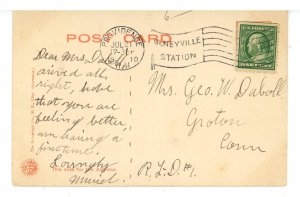 POST CARD
PROVIDENCE
JUL 21
10
OLNEYVILLE
STATION
Dear Mrs. Da
arrived all
right, hope
that you are
feeling better
am having a
fine time.
Muriel.
Mrs. Geo. W. Daboll
Groton
Conn
R.F.D #1.